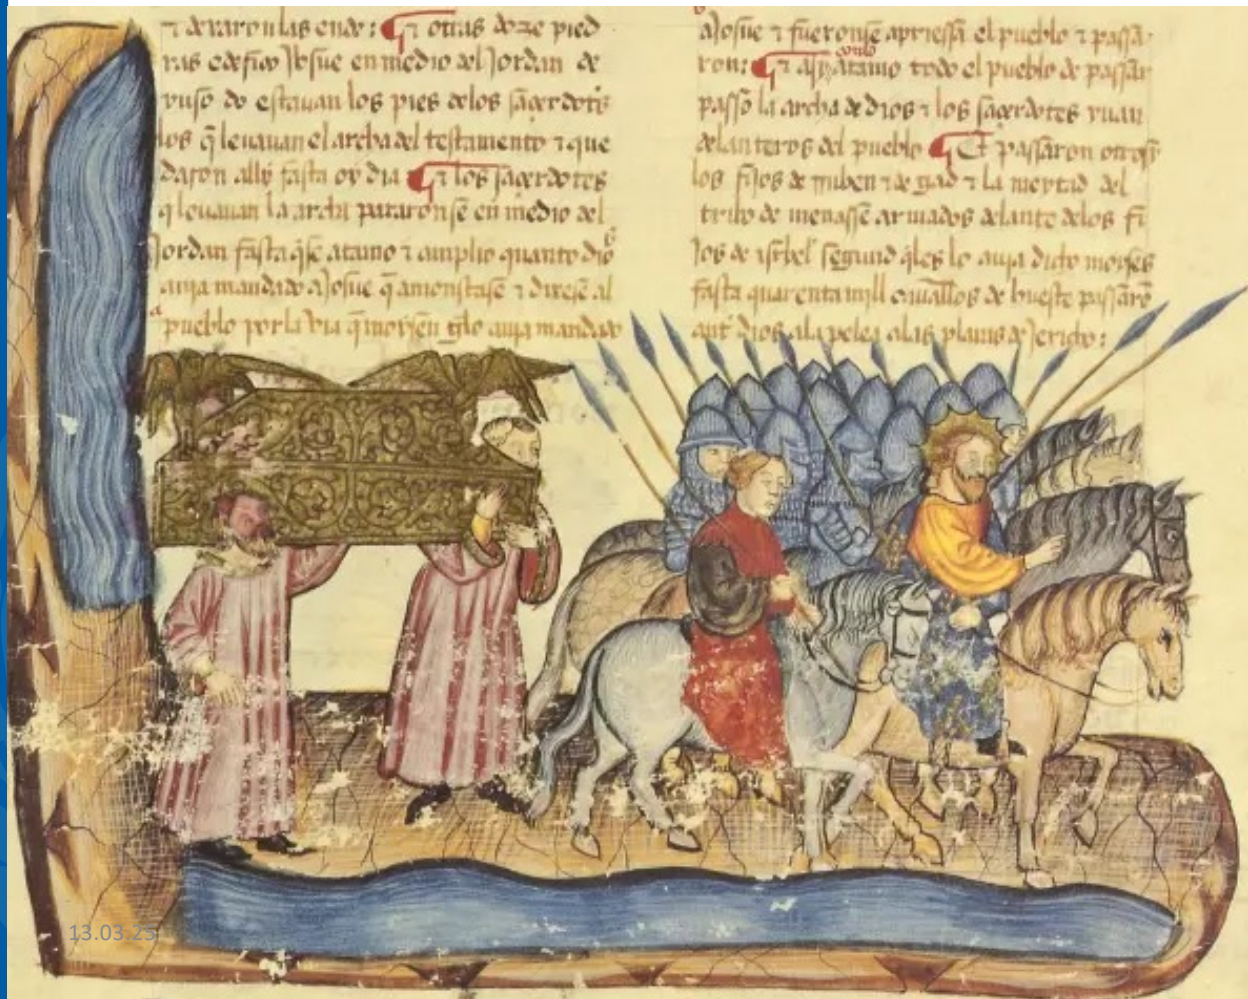 ⁊ aꝛaronlas ende: Et otras doze pied
ras edefico Josue en medio del Jordan de
yuso do estauan los pies delos saçerdotes
los q̃ leuauan el archa del testamento ⁊ que
daron ally fasta oy dia Et los saçerdotes
q̃ leuauan la archa pararonse en medio del
Jordan fasta q̃se ⁊ cunplio quanto dios
auia mandado a Josue q̃ amonstase ⁊ dixese al
pueblo por la via q̃ moysen gelo auia mandado
a Josue ⁊ fueronse apriessa el pueblo ⁊ passa
ron: Et todo el pueblo de passar
passo la archa de dios ⁊ los saçerdotes yuan
delanteros del pueblo Et passaron otrosy
los fijos de rruben ⁊ de gad ⁊ la meytad del
tribo de menasse armados delante delos fi
jos de isrrael segund q̃les lo auia dicho moysen
fasta quarenta mill cauallos de hueste passaron
ant dios ala pelea alas planas de Jerico:
13.03.25